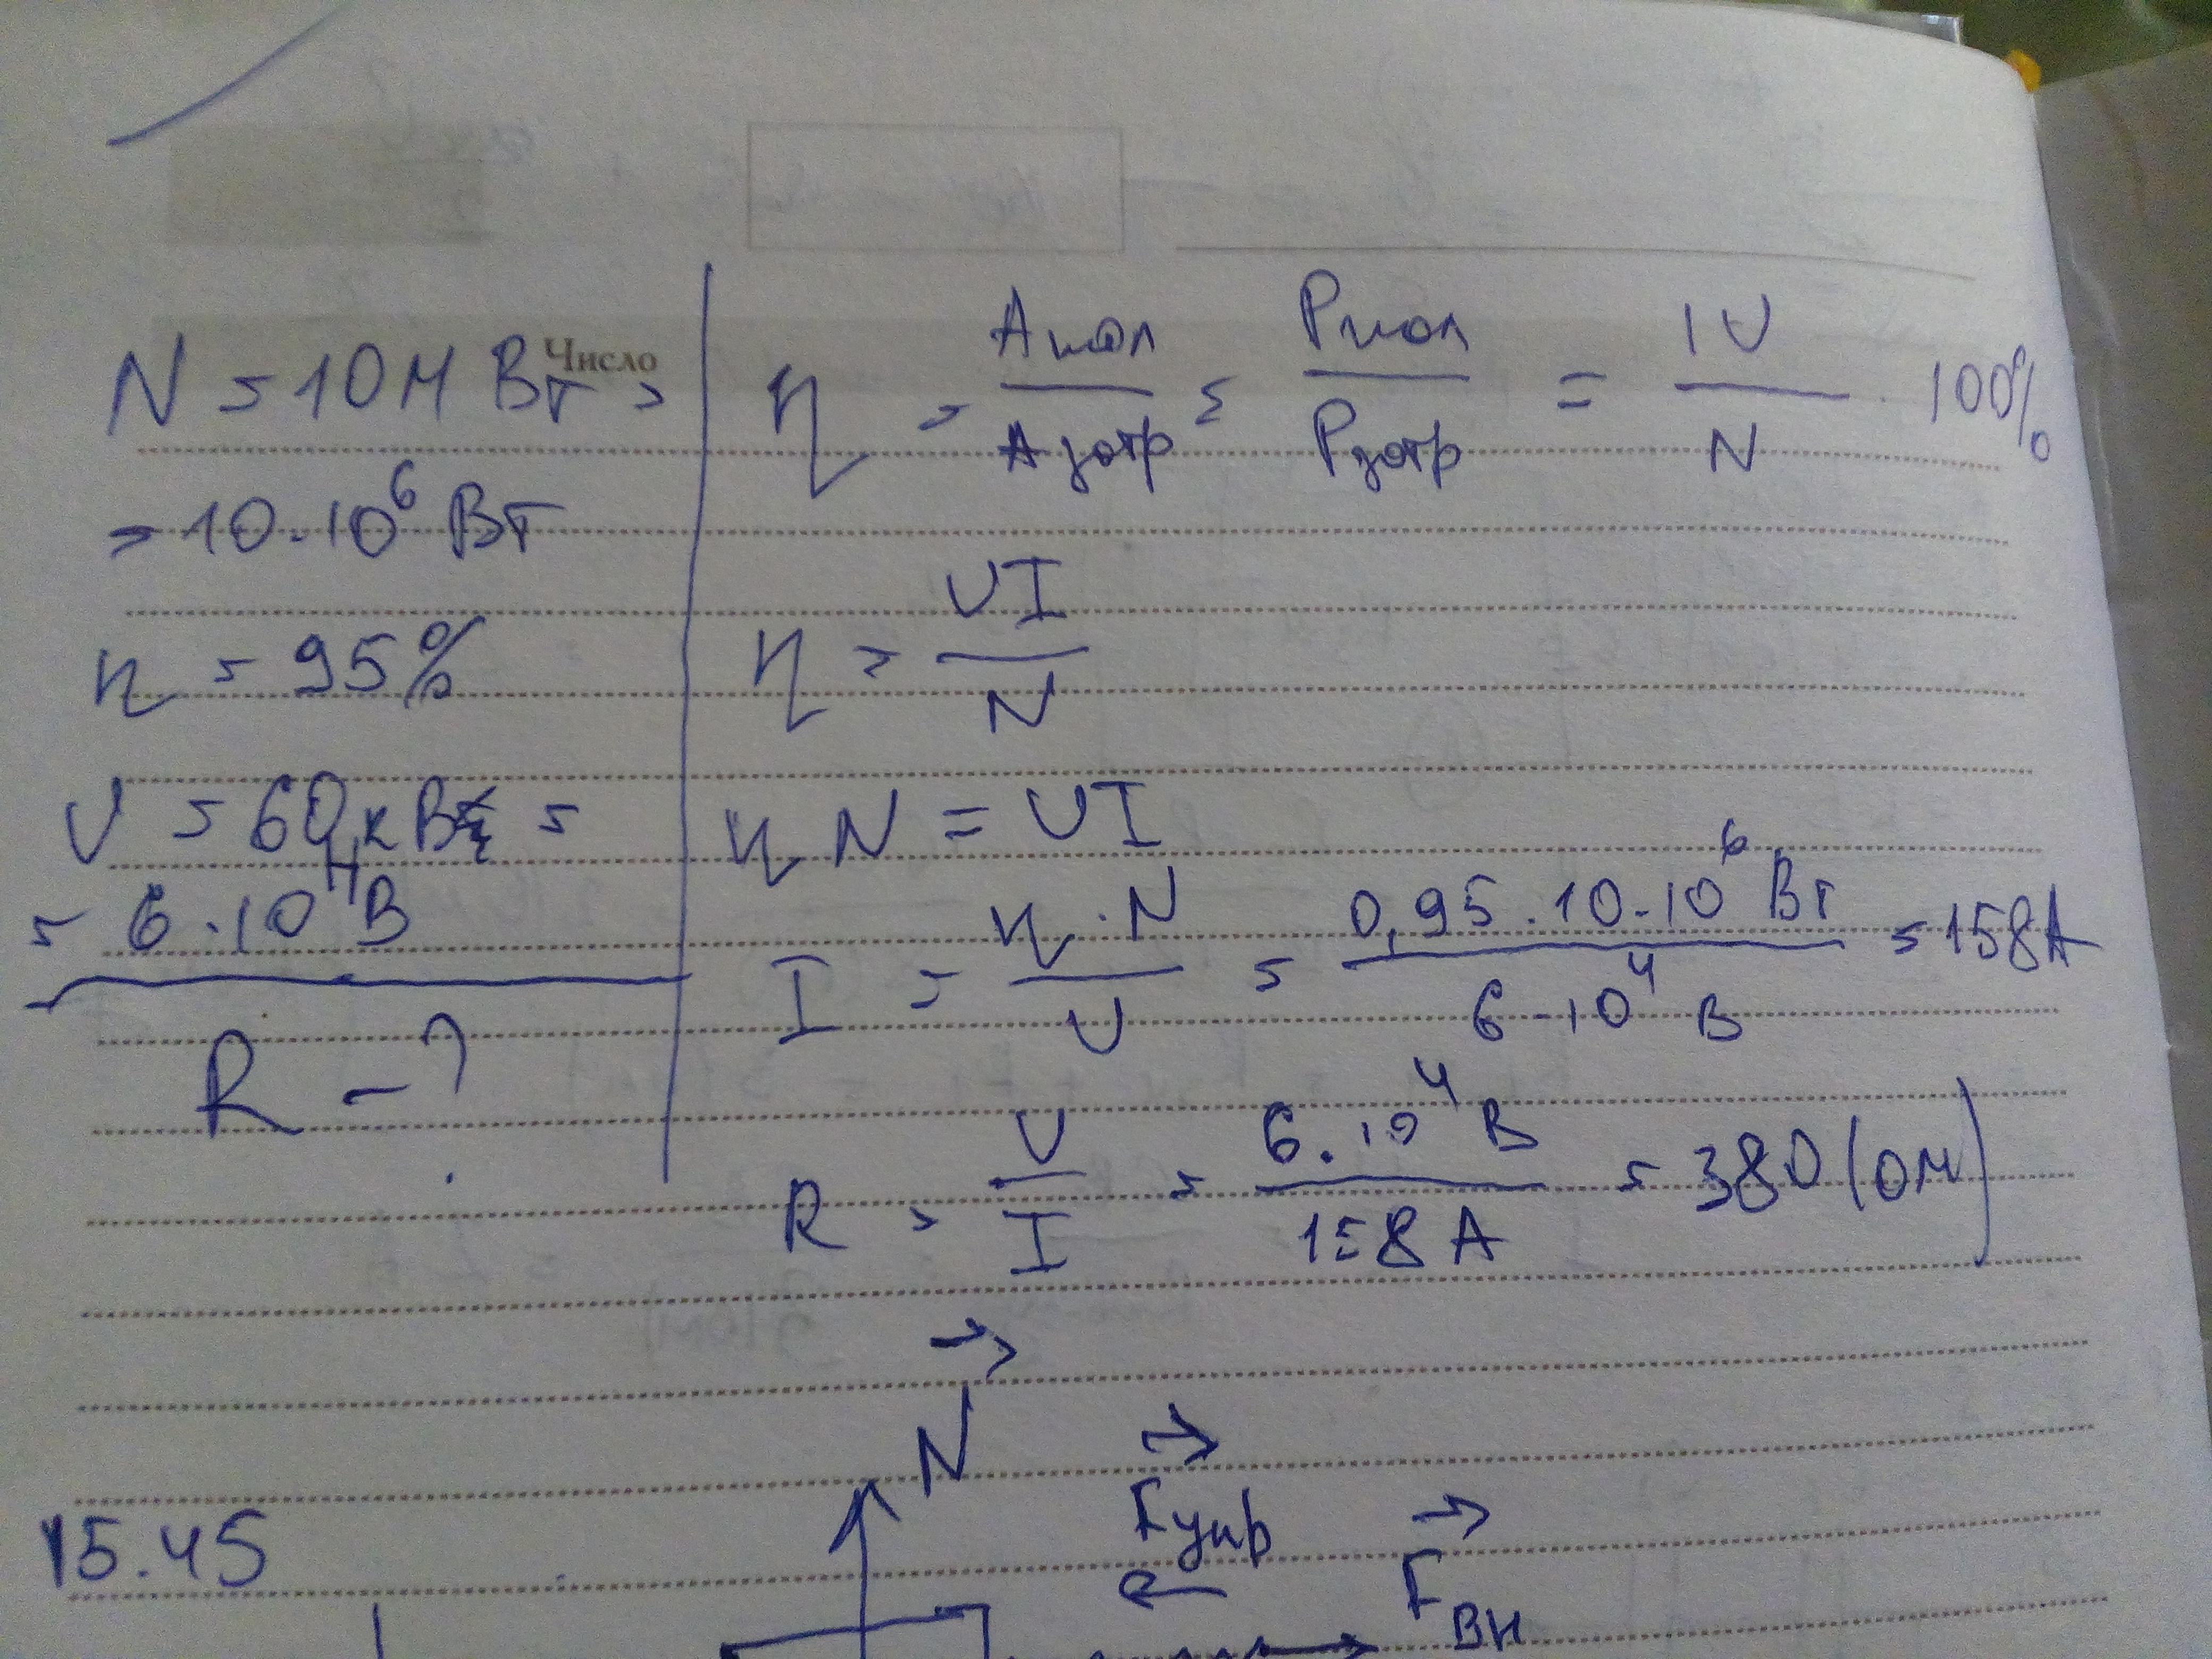 Число
N = 10 М Вт =
= 10 · 10⁶ Вт
η = 95%
U = 60 кВ =
= 6 · 10⁴ В
R – ?
η = Aпол / Aзатр = Pпол / Pзатр = IU / N · 100%
η = UI / N
η N = UI
I = η · N / U = 0,95 · 10 · 10⁶ Вт / 6 · 10⁴ В = 158 А
R = U / I = 6 · 10⁴ В / 158 А = 380 (Ом)
N
Fупр
15.45
Fвн